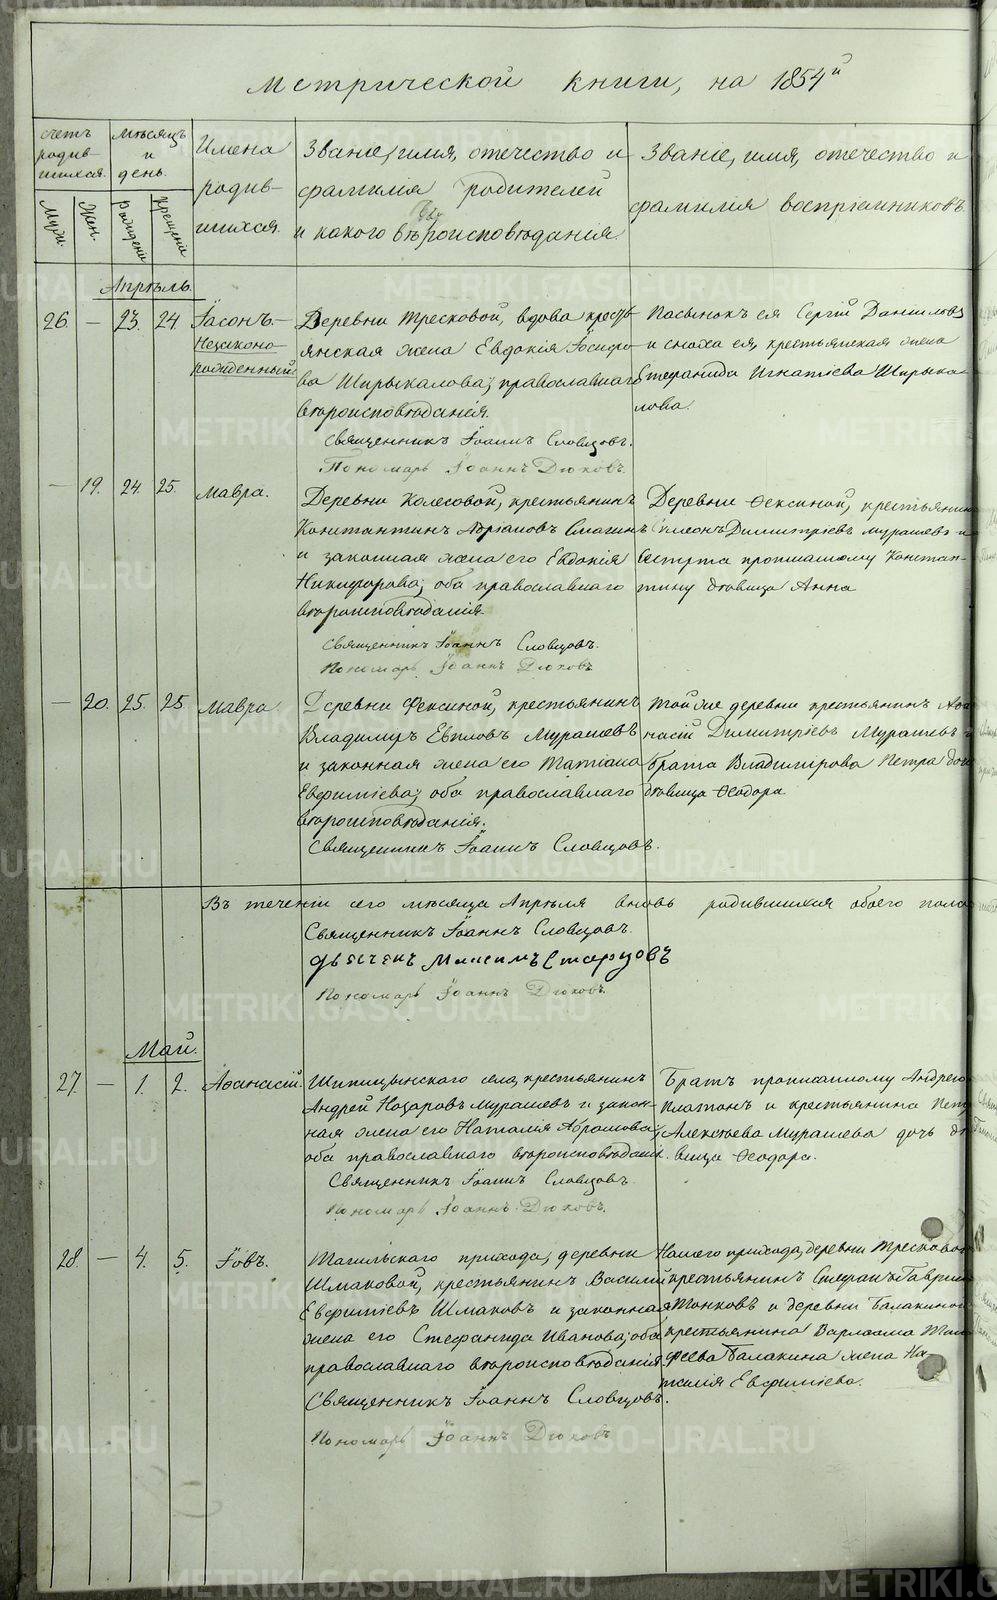 Метрической книги, на 1854й
счетъ родив- шихся.
Мѣсяцъ и день.
Имена родив- шихся.
Званіе, имя, отечество и
фамилія родителей
и какого вѣроисповѣданія.
Званіе, имя, отечество и
фамилія воспріемниковъ.
Муж.
Жен.
Рожденія
Крещенія
Апрѣль.
26. — 23. 24. Іасонъ. —
Незаконо-
рожденный
Деревни Тресковой, вдова кресть-
янская жена Евдокія Іосифо-
ва Ширыкалова; православнаго
вѣроисповѣданія.
Священникъ Іоаннъ Словцовъ.
Пономарь Іоаннъ Дюковъ.
Пасынокъ ея Сергій Даниловъ
и сноха ея, крестьянская жена
Стефанида Игнатіева Ширыка-
лова.
— 19. 24. 25. Мавра.
Деревни Колесовой, крестьянинъ
Константинъ Абрамовъ Смагинъ
и законная жена его Евдокія
Никифорова; оба православнаго
вѣроисповѣданія.
Священникъ Іоаннъ Словцовъ.
Пономарь Іоаннъ Дюковъ
Деревни Ѳексиной, крестьянинъ
Симеонъ Димитріевъ Мурашевъ и
сестра прописанному Констан-
тину дѣвица Анна
— 20. 25. 25 Мавра
Деревни Фексиной, крестьянинъ
Владимиръ Евпловъ Мурашевъ
и законная жена его Татіана
Евфиміева; оба православнаго
вѣроисповѣданія.
Священникъ Іоаннъ Словцовъ.
той же деревни крестьянинъ
Димитріевъ Мурашевъ
брата Владимирова Петра
дѣвица Ѳеодора
Въ теченіи сего мѣсяца Апрѣля вновь родившихся обоего пола
Священникъ Іоаннъ Словцовъ.
Дьячекъ Максимъ Старцовъ
Пономарь Іоаннъ Дюковъ.
Май.
27. — 1. 2. Аѳанасій.
Шипицынскаго села, крестьянинъ
Андрей Назаровъ Мурашевъ и закон-
ная жена его Наталія Абрамова;
оба православнаго вѣроисповѣданія.
Священникъ Іоаннъ Словцовъ.
Пономарь Іоаннъ Дюковъ.
Братъ прописанному Андрею
Платонъ и крестьянина
Алексѣева Мурашева дочь дѣ-
вица Ѳеодора.
28. — 4. 5. Іовъ.
Тагильскаго прихода, деревни
Шмаковой, крестьянинъ Василій
Евфиміевъ Шмаковъ и законная
жена его Стефанида Иванова; оба
православнаго вѣроисповѣданія.
Священникъ Іоаннъ Словцовъ.
Пономарь Іоаннъ Дюковъ
Нашего прихода, деревни Тресковой
крестьянинъ Стефанъ
Тонковъ и деревни Балакиной
крестьянина Варлаама
Балакина жена На-
талія Евфиміева.
METRIKI.GASO-URAL.RU